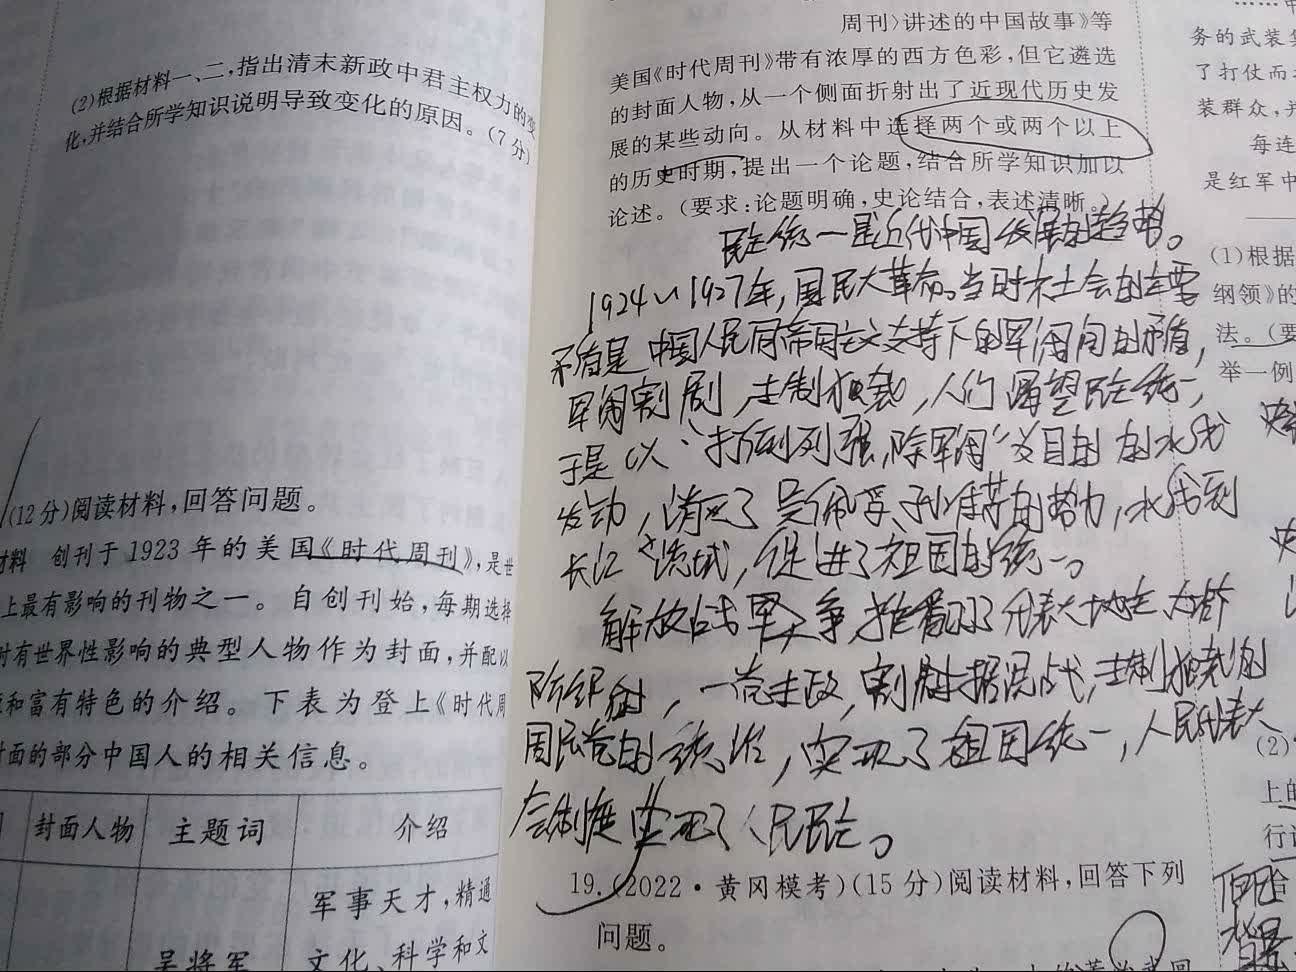 (2)根据材料一、二,指出清末新政中君主权力的变
化,并结合所学知识说明导致变化的原因。(7分)
(12分)阅读材料,回答问题。
材料 创刊于1923年的美国《时代周刊》,是世
上最有影响的刊物之一。自创刊始,每期选择
时有世界性影响的典型人物作为封面,并配以
和富有特色的介绍。下表为登上《时代周
封面的部分中国人的相关信息。
封面人物 主题词 介绍
吴将军
军事天才,精通
文化、科学和文
周刊〉讲述的中国故事》等
美国《时代周刊》带有浓厚的西方色彩,但它遴选
的封面人物,从一个侧面折射出了近现代历史发
展的某些动向。从材料中选择两个或两个以上
的历史时期,提出一个论题,结合所学知识加以
论述。(要求:论题明确,史论结合,表述清晰。)
民主统一是近代中国发展的趋势。
1924~1927年,国民大革命。当时社会的主要
矛盾是中国人民同帝国主义支持下的军阀间的矛盾,
军阀割剧,专制独裁,人们渴望民主统一,
于是以“打倒列强,除军阀”为目的的北伐
发动,消灭了吴佩孚、孙传芳的势力,北伐到
长江流域,促进了祖国的统一。
解放战争,推翻了代表大地主
阶级,一党专政,专制独裁的
国民党的统治,实现了祖国统一,人民代表大
会制度实现了人民民主。
19.(2022·黄冈模考)(15分)阅读材料,回答下列
问题。
务的武装集
了打仗而
装群众,并
每连
是红军中
(1)根据
纲领》的
法。(要
举一例
(2)
上的
行